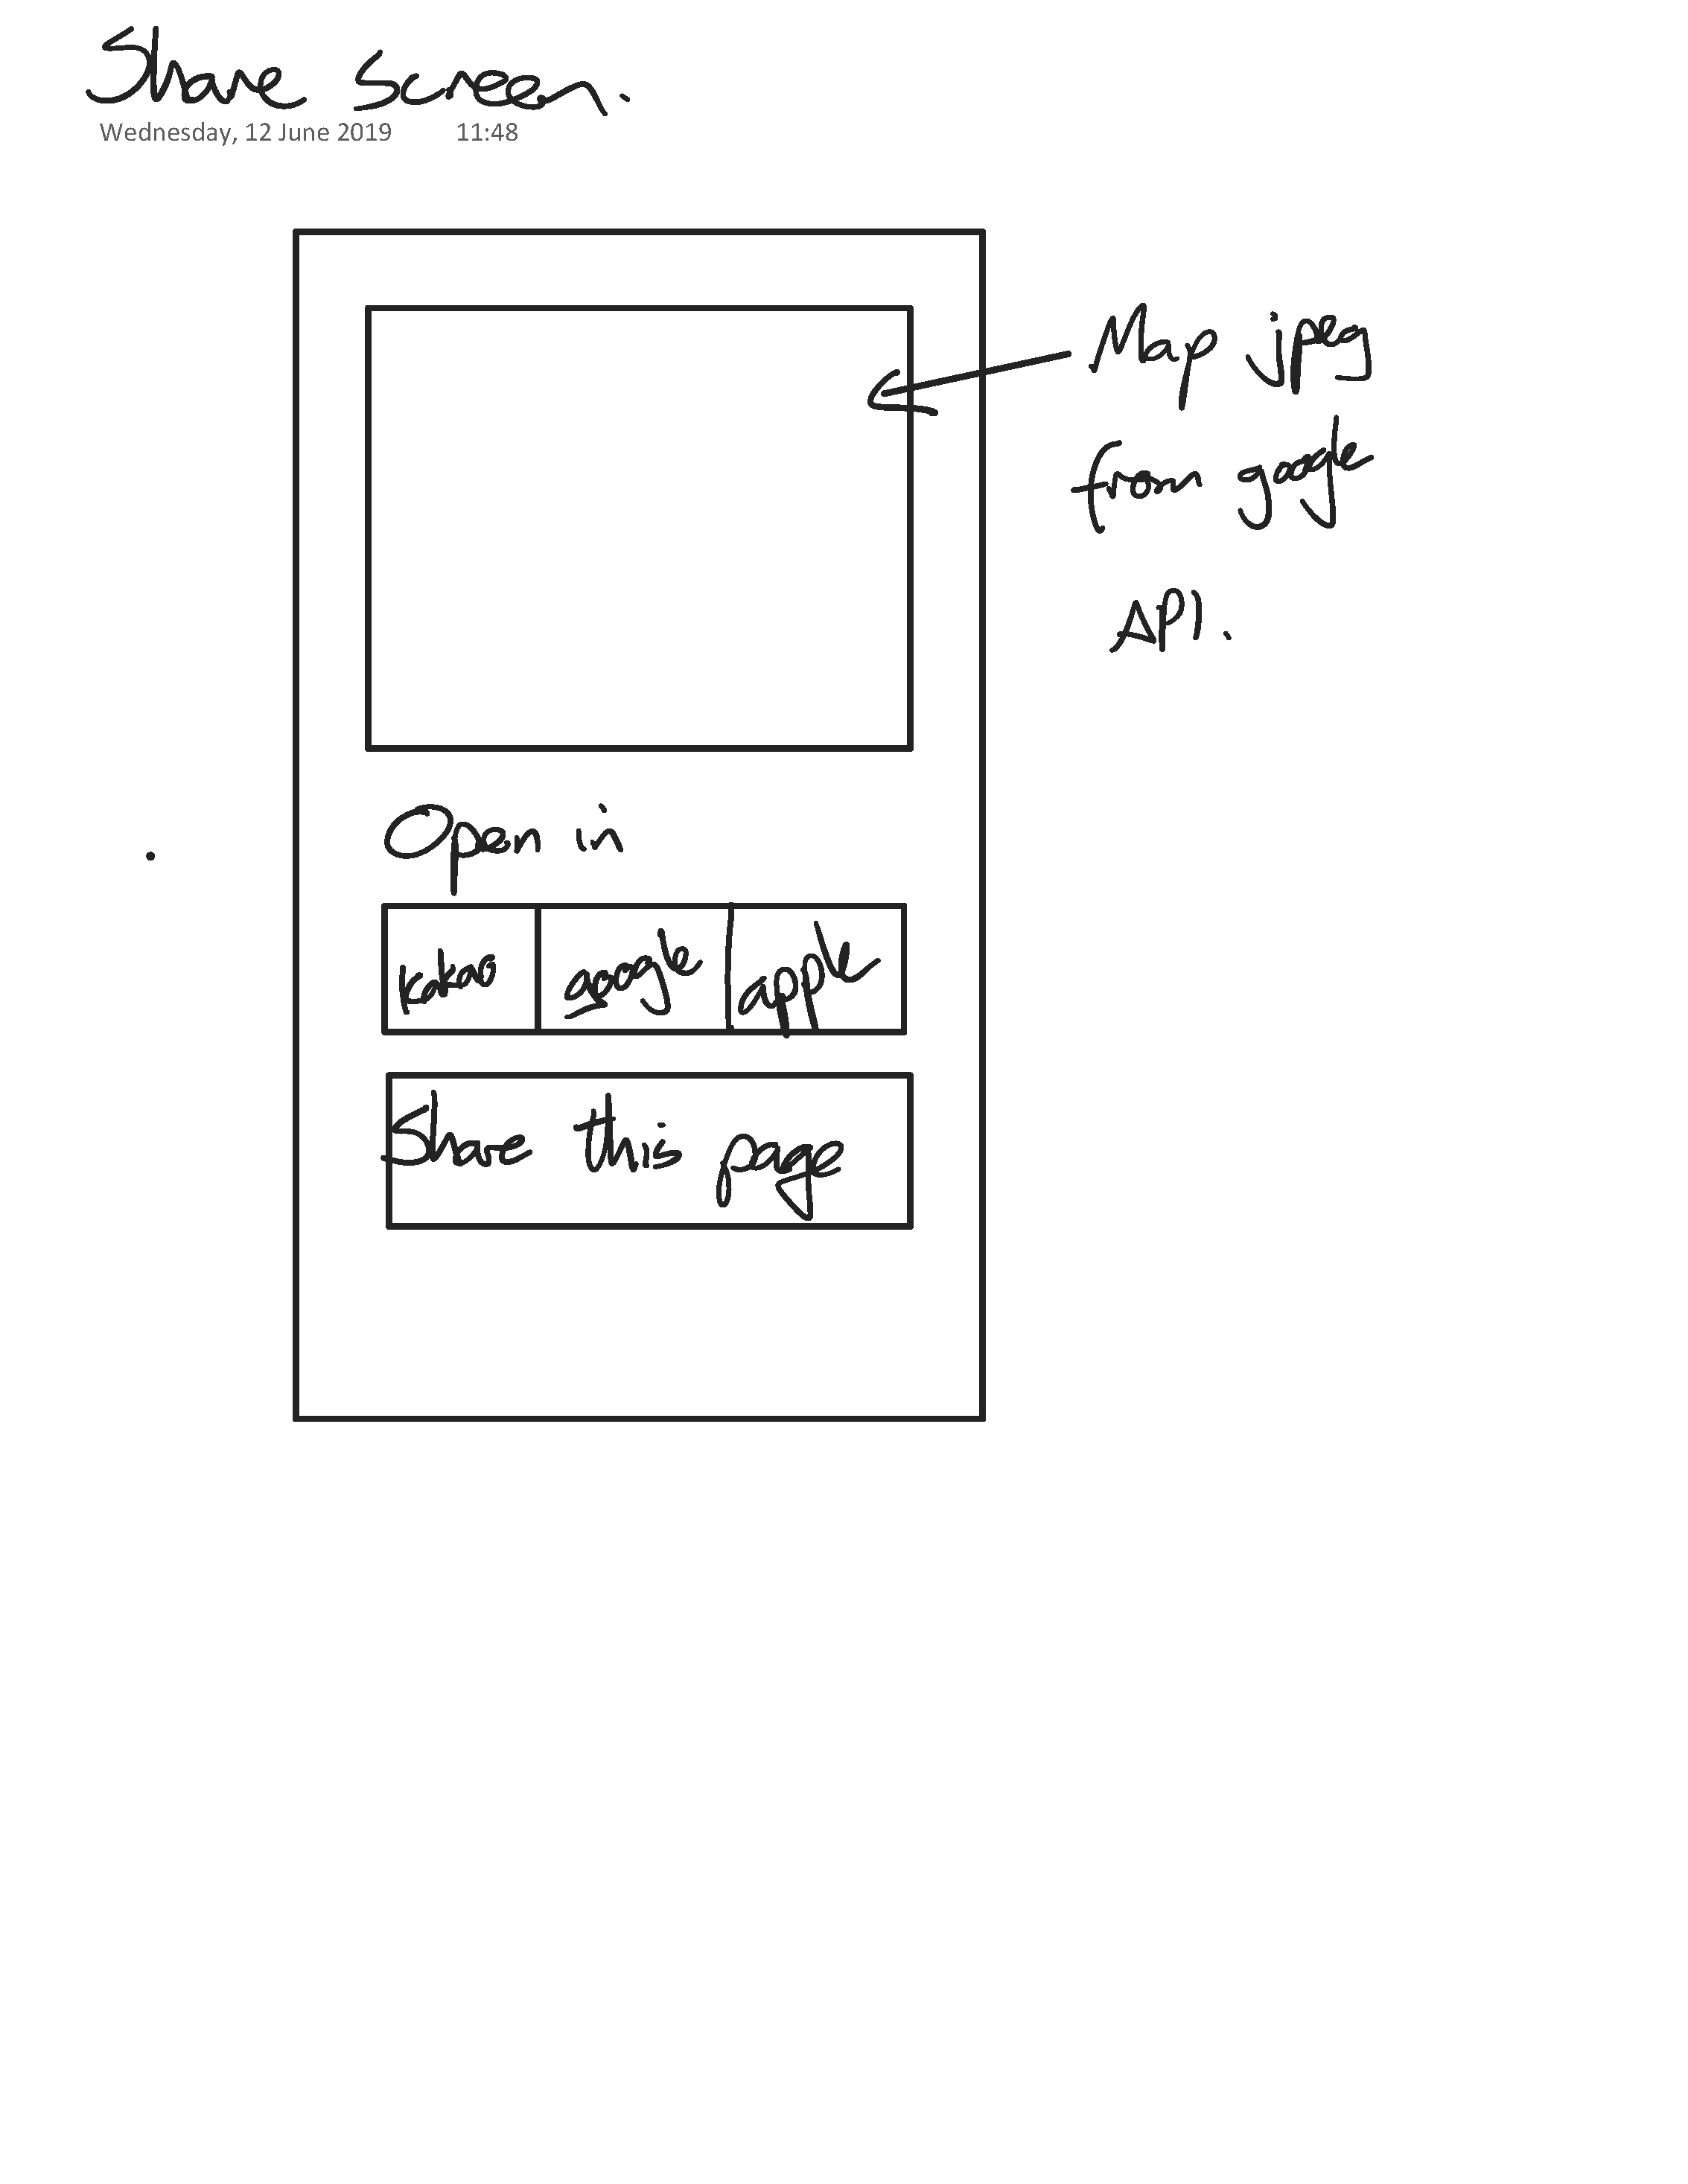 Share screen.
Wednesday, 12 June 2019 11:48
Map jpeg
from google
API.
Open in
kakao google apple
Share this page